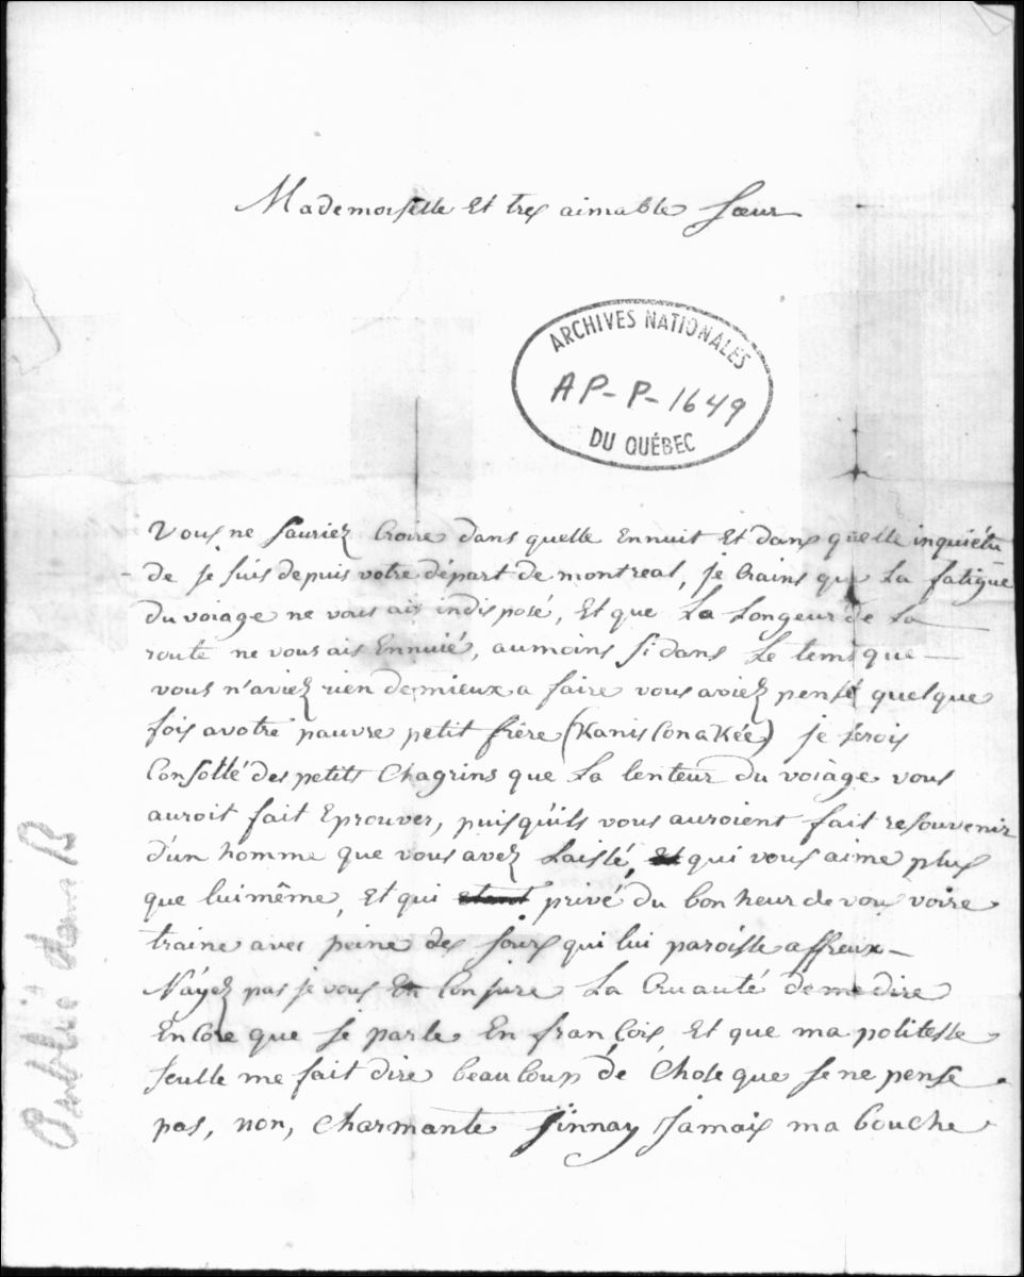 Mademoiselle et tres aimable Sœur
ARCHIVES NATIONALES
AP-P-1649
DU QUÉBEC
Vous ne sauriez Croire dans quelle Ennuit Et dans quelle inquiétu
de je suis depuis votre départ de montreal, je Crains que La fatigue
du voiage ne vous ais indisposé, Et que La Longeur de La
route ne vous ais Ennuié, aumoins si dans Le tems que
vous n'aviez rien de mieux a faire vous aviez pensé quelque
fois a votre pauvre petit frère (KanisConaKée) je serois
Consollé des petits Chagrins que La lenteur du voiàge vous
auroit fait Eprouver, puisqu'ils vous auroient fait resouvenir
d'un homme que vous avez Laissé, et qui vous aime plus
que lui même, Et qui etant privé du bonheur de vou voire
traine avec peine des jours qui lui paroisse affreux
N'áyez pas je vous En Conjure La Cruauté de me dire
Encore que je parle En françois, Et que ma politesse
seulle me fait dire beauCoup dé Chose que je ne pense
pas, non, charmante jinnay Jamais ma bouche
Publié dans B